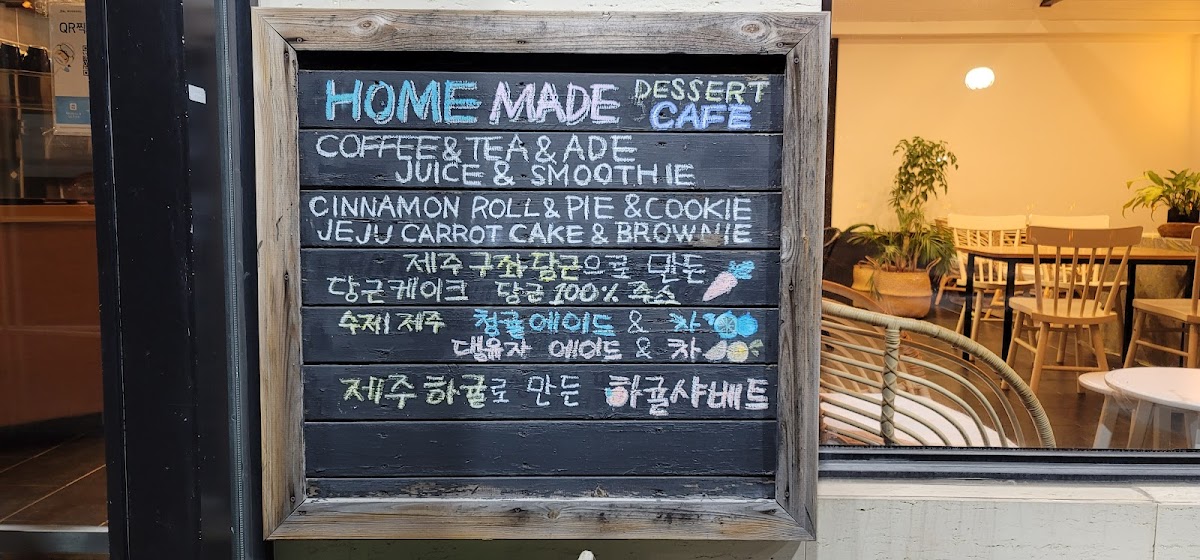 QR찍
HOME MADE DESSERT CAFE
COFFEE & TEA & ADE
JUICE & SMOOTHIE
CINNAMON ROLL & PIE & COOKIE
JEJU CARROT CAKE & BROWNIE
제주 구좌당근으로 만든
당근케이크 당근 100% 주스
수제 제주 청귤에이드 & 차
댕유자 에이드 & 차
제주 하귤로 만든 하귤샤베트